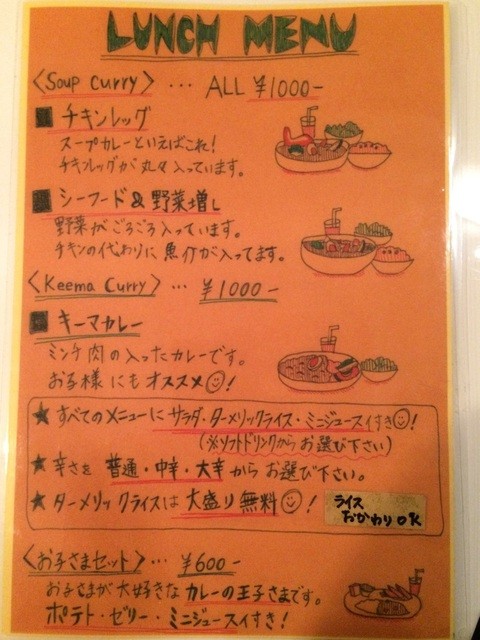 LUNCH MENU
〈Soup Curry〉 … ALL ¥1000-
■ チキンレッグ
スープカレーといえばこれ!
チキンレッグが丸々入っています。
■ シーフード&野菜増し
野菜がごろごろ入っています。
チキンの代わりに魚介が入ってます。
〈Keema Curry〉 … ¥1000-
■ キーマカレー
ミンチ肉の入ったカレーです。
お子様にもオススメ☺!
★ すべてのメニューにサラダ・ターメリックライス・ミニジュース付き☺!
(※ソフトドリンクからお選び下さい)
★ 辛さを普通・中辛・大辛からお選び下さい。
★ ターメリックライスは大盛り無料☺!
ライス
おかわりOK
〈お子さまセット〉 … ¥600-
お子さまが大好きなカレーの王子さまです。
ポテト・ゼリー・ミニジュース付き!